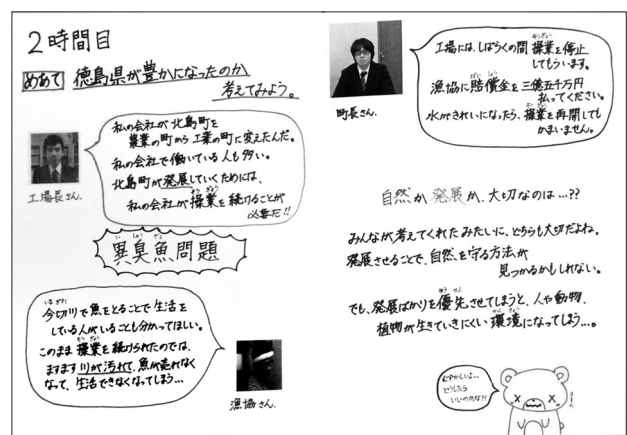 ２時間目
めあて 徳島県が豊かになったのか
考えてみよう。
私の会社が北島町を
農業の町から工業の町に変えたんだ。
私の会社で働いている人も多い。
北島町が発展していくためには、
私の会社が操業を続けることが
必要だ!!
工場長さん.
異臭魚問題
今切川で魚をとることで生活を
している人がいることも分かってほしい。
このまま操業を続けられたのでは、
ますます川が汚れて、魚が売れなく
なって、生活できなくなってしまう…
漁協さん.
工場には、しばらくの間 操業を停止
してもらいます。
漁協に賠償金を三億五千万円
払ってください。
水がきれいになったら、操業を再開しても
かまいません。
町長さん.
自然か発展か、大切なのは…??
みんなが考えてくれたみたいに、どちらも大切だよね。
発展させることで、自然を守る方法が
見つかるかもしれない。
でも、発展ばかりを優先させてしまうと、人や動物、
植物が生きていきにくい環境になってしまう…。
むずかしいよ…
どうしたら
いいのかな??